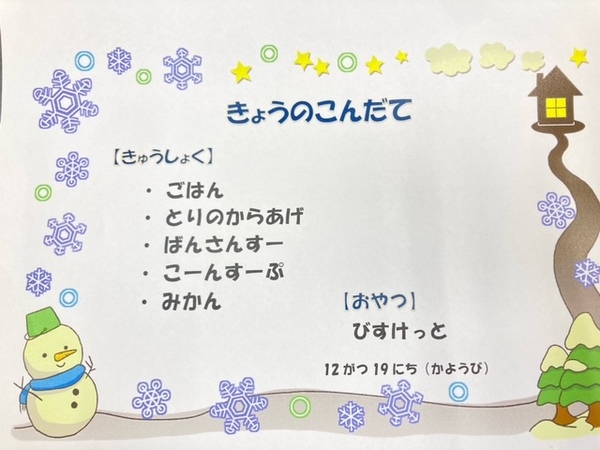 きょうのこんだて
【きゅうしょく】
・ ごはん
・ とりのからあげ
・ ばんさんすー
・ こーんすーぷ
・ みかん
【おやつ】
びすけっと
12がつ19にち（かようび）